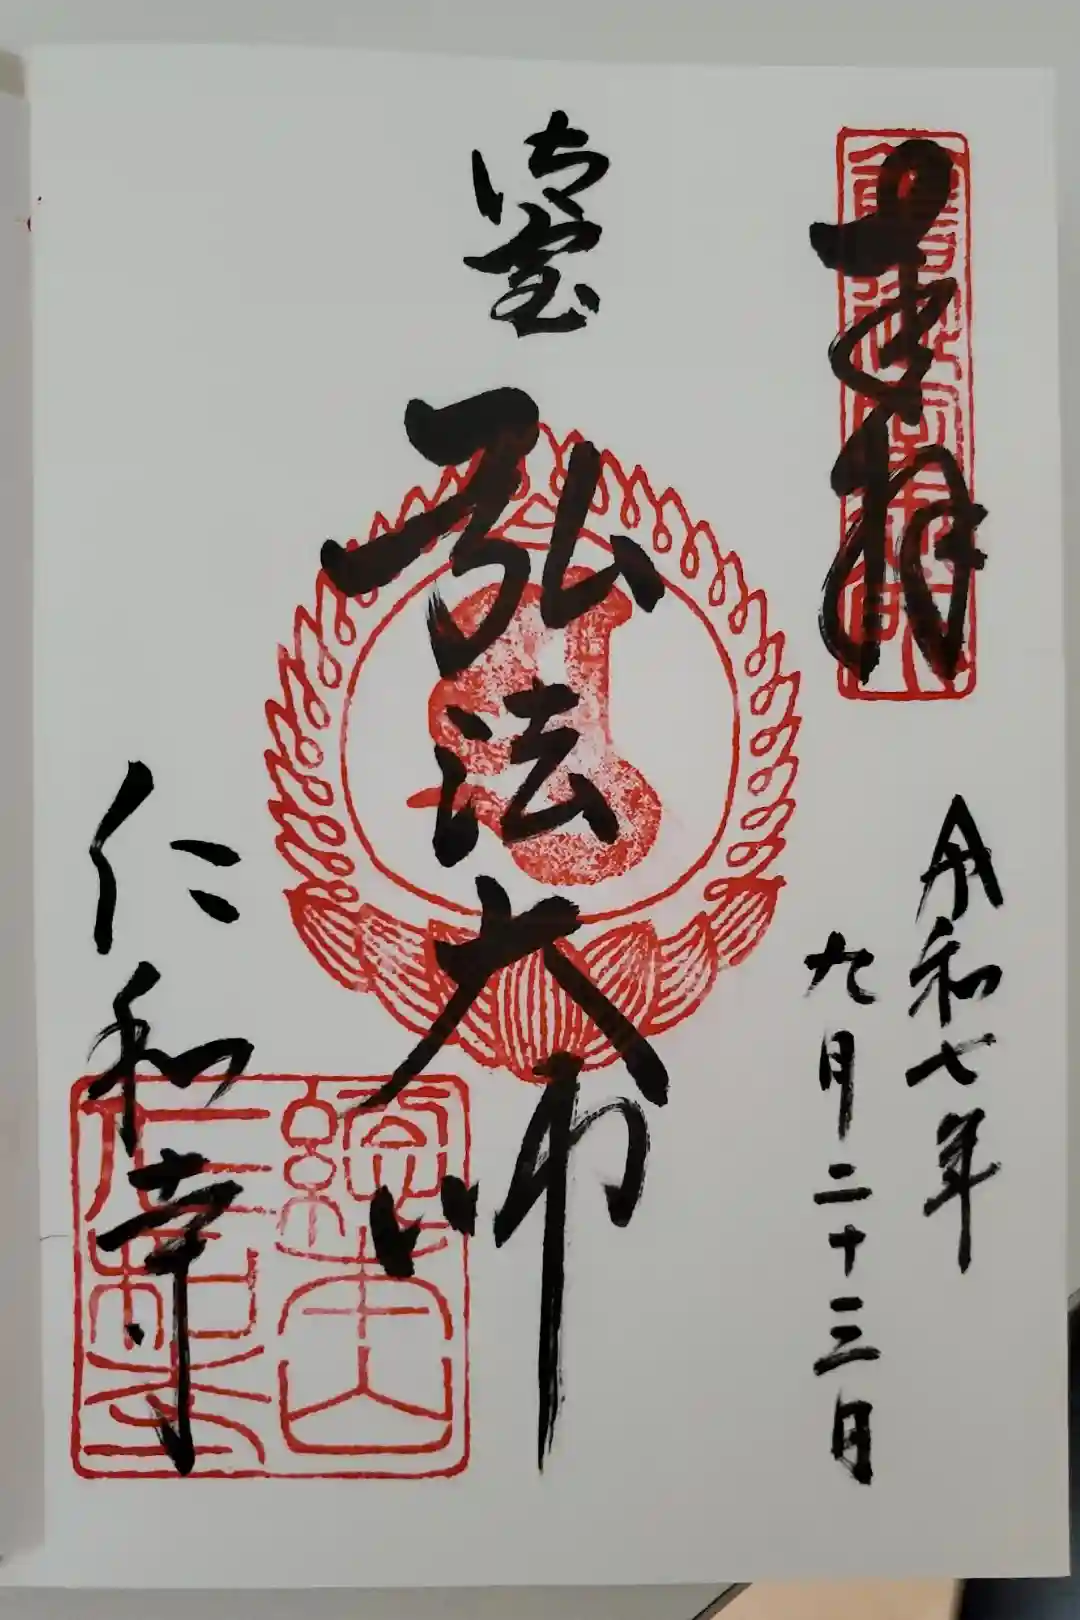 奉拝
令和七年
九月二十三日
御室
弘法大師
仁和寺
總本山
仁和寺